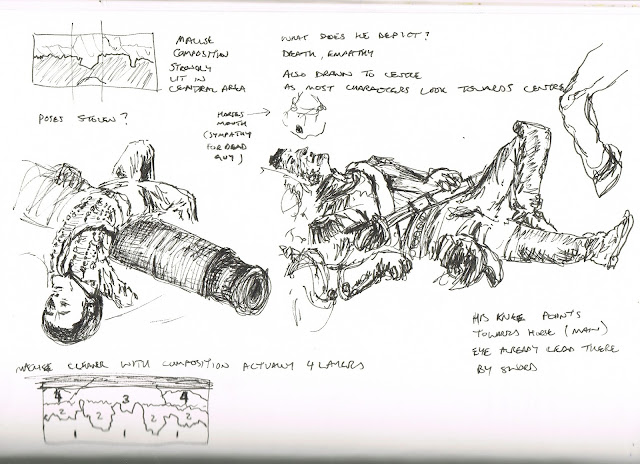 MACLISE
COMPOSITION
STRONGLY
LIT IN
CENTRAL AREA
WHAT DOES HE DEPICT?
DEATH, EMPATHY
ALSO DRAWN TO CENTRE
AS MOST CHARACTERS LOOK TOWARDS CENTRE
POSES STOLEN?
HORSES
MOUTH
(SYMPATHY
FOR DEAD
GUY)
HIS KNEE POINTS
TOWARDS HORSE (MAN)
EYE ALREADY LEAD THERE
BY SWORD
MACLISE CLEVER WITH COMPOSITION ACTUALLY 4 LAYERS
4 3 4
2 2 2 2
1 1 1